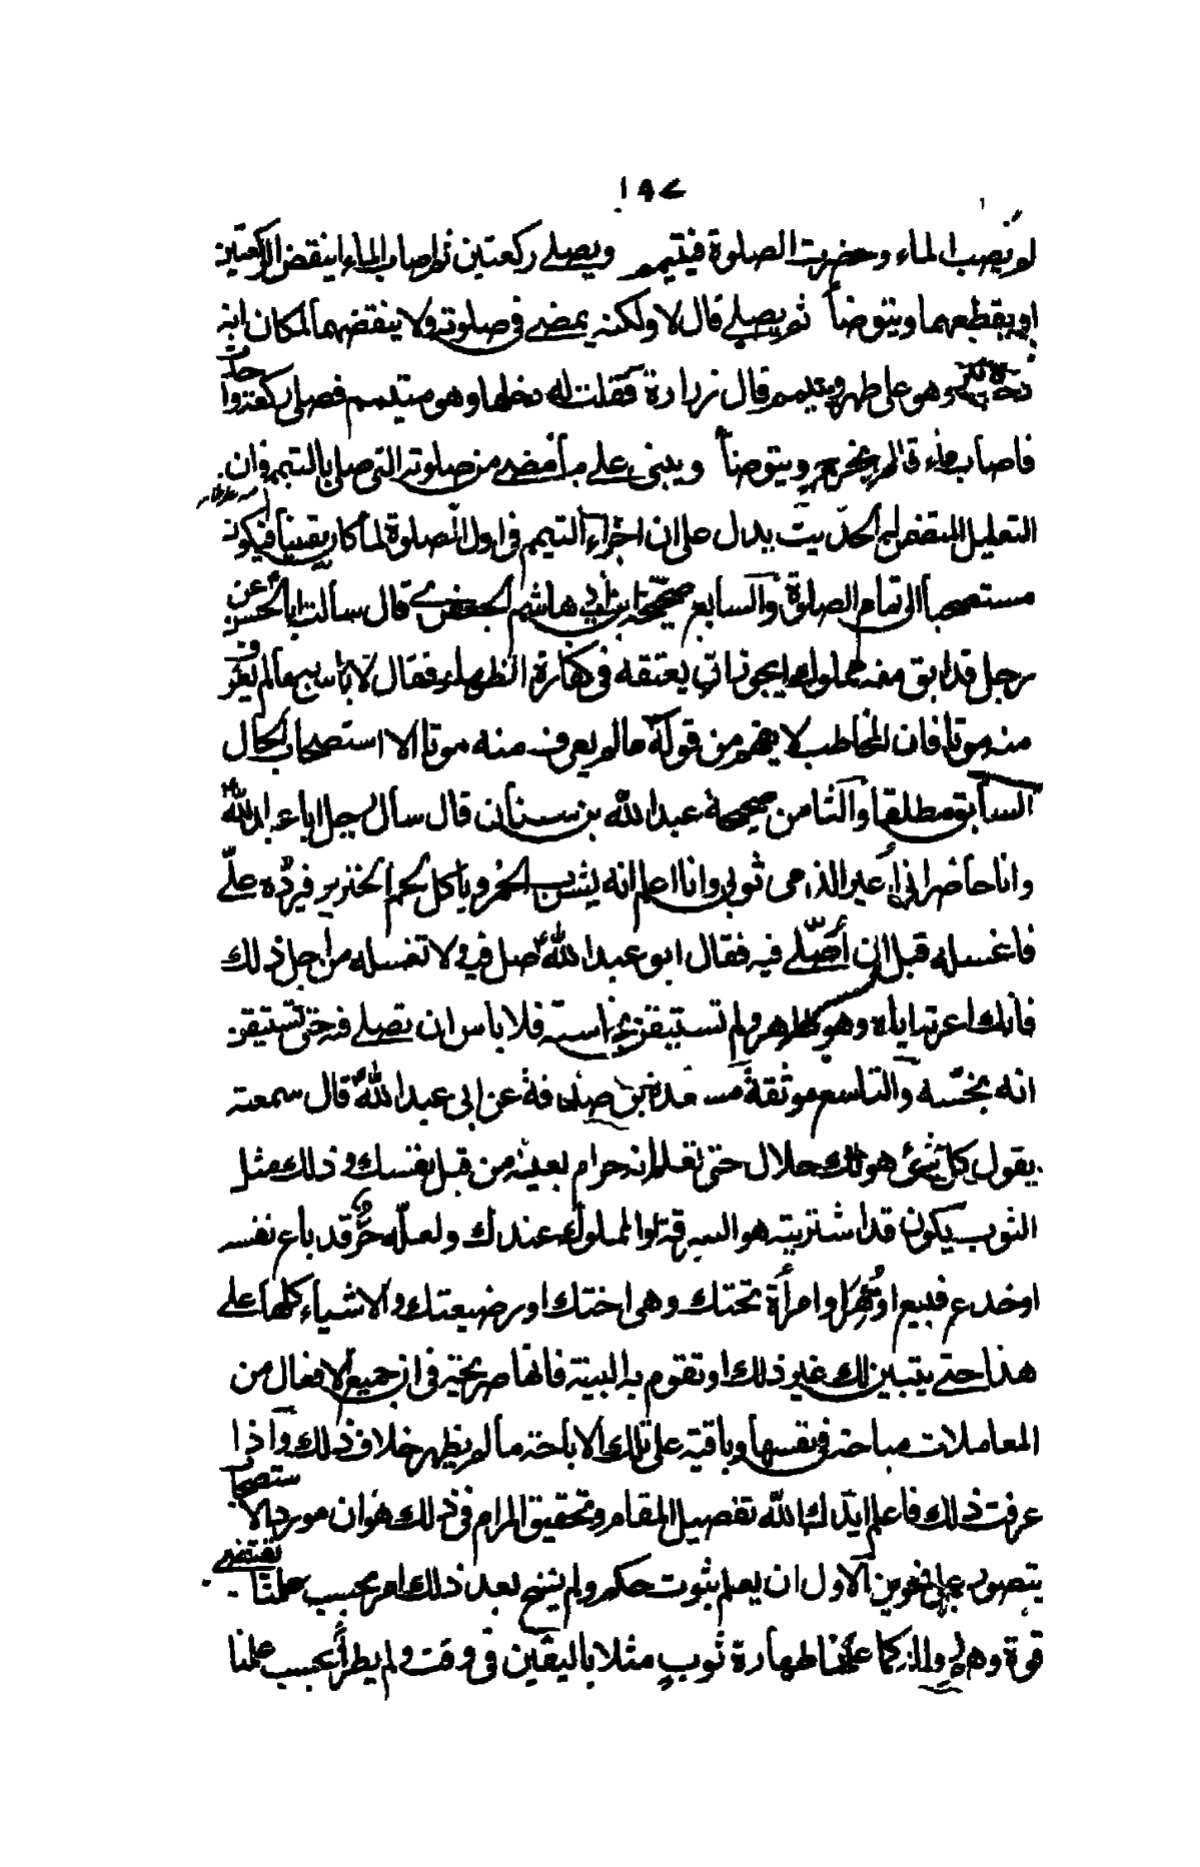 ١٩٧
لم يصب الماء وحضرت الصلوة فيتيمم ويصلي ركعتين ثم اصاب الماء اينقض الركعتين
او يقطعهما ويتوضأ ثم يصلي قال لا ولكنه يمضي في صلوته ولا ينقضهما لمكان انه
دخلها وهو على طهر وتيمم قال زرارة فقلت له دخلها وهو متيمم فصلى ركعة واحدث
فاصاب ماء قال يخرج ويتوضأ ويبني على ما مضى من صلوته التي صلى بالتيمم فان
التعليل المتقضى الحديث يدل على ان اجزاء التيمم في اول الصلوة لما كان يقينيا فيكون
مستصحبا الى تمام الصلوة والسابع صحيحة ابي هاشم الجعفري قال سألت ابا الحسن عن
رجل قد ابق منه مملوكه ايجوز ان يعتقه في كفارة الظهار فقال لا باس به ما لم يعرف
منه موتا فان المخاطب لا يفهم من قوله ما لم يعرف منه موتا الا استصحاب الحال
السابق مطلقا والثامن صحيحة عبد الله بن سنان قال سأل رجل ابا عبد الله
وانا حاضر اني أعير الذمى ثوبي وانا اعلم انه يشرب الخمر وياكل لحم الخنزير فيرده علّي
فاغسله قبل ان أصلّي فيه فقال ابو عبد الله صل فيه ولا تغسله من اجل ذلك
فانك اعرته اياه وهو طاهر ولم تستيقن نجاسته فلا باس ان تصلي فيه حتى تستيقن
انه نجسّه والتاسع موثقة مسعدة بن صدقة عن ابي عبد الله قال سمعته
يقول كل شئ هو لك حلال حتى تعلم انه حرام بعينه من قبل نفسك وذلك مثل
الثوب يكون قد اشتريته هو السرقة او المملوك عندك ولعله حرّ قد باع نفسه
او خدع فبيع او قهر او امرأة تحتك وهي اختك او رضيعتك والاشياء كلها على
هذا حتى يتبين لك غير ذلك او تقوم به البينة فانها صريحة في ان جميع الافعال من
المعاملات مباحة في نفسها وباقية على تلك الاباحة ما لم يظهر خلاف ذلك واذا
عرفت ذلك فاعلم ايّدك الله تفصيل المقام وتحقيق المرام في ذلك هو ان مورد الاستصحاب
يتصور على نحوين الاول ان يعلم بثبوت حكم ولم ينسخ بعد ذلك امر بحسب علمنا يقتضي
كما علمنا طهارة ثوب مثلا باليقين في وقت ولم يطرأ بحسب علمنا